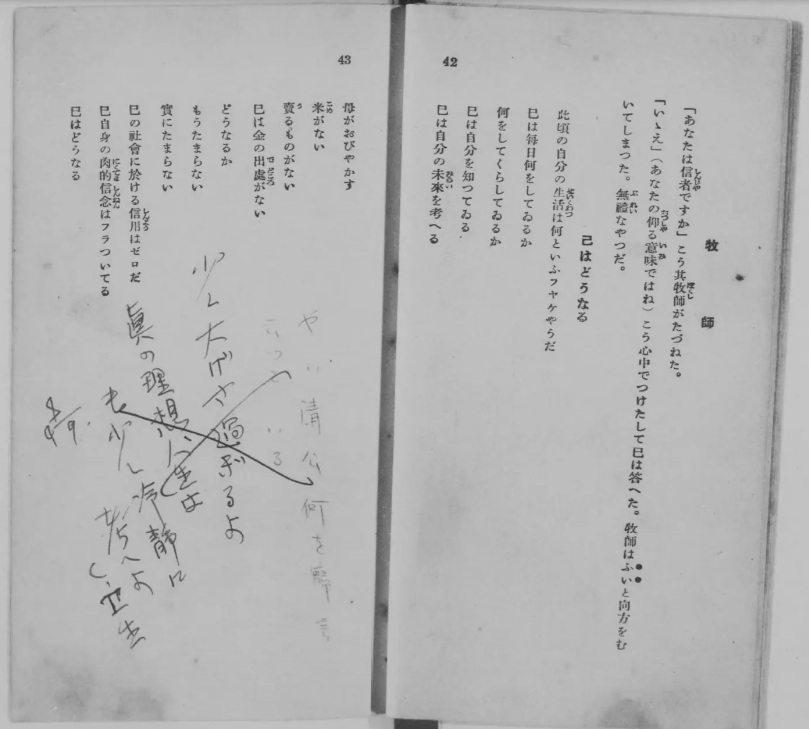 42
牧師
「あなたは信者ですか」こう其牧師がたづねた。
「いゝえ」(あなたの仰る意味ではね)こう心中でつけたして巳は答へた。牧師はふいと向方をむ
いてしまつた。無禮なやつだ。
己はどうなる
此頃の自分の生活は何といふフヤケやうだ
巳は毎日何をしてゐるか
何をしてくらしてゐるか
巳は自分を知つてゐる
巳は自分の未來を考へる
43
母がおびやかす
米がない
賣るものがない
巳は金の出處がない
どうなるか
もうたまらない
實にたまらない
巳の社會に於ける信用はゼロだ
巳自身の肉的信念はフラついてる
巳はどうなる
やい 公何を
少し大げさ過ぎるよ
眞の理想人生は
も少し冷静に
考へよ